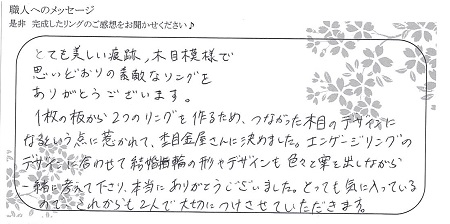 職人へのメッセージ
是非 完成したリングのご感想をお聞かせください♪
とても美しい痕跡，木目模様で
思いどおりの素敵なリングを
ありがとうございます。
1枚の板から2つのリングを作るため、つながった木目のデザインに
なるという点に惹かれて、杢目金屋さんに決めました。エンゲージリングの
デザインに合わせて結婚指輪の形やデザインも色々と案を出しながら
一緒に考えて下さり、本当にありがとうございました。とっても気に入っている
ので、これからも2人で大切につけさせていただきます。